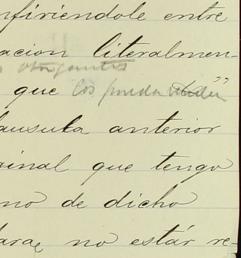 nfiriendole entre
acion literalmen-
otorgantes
que los pueda vender "
lausula anterior
ginal que tengo
no de dicho
lara, no estár re-